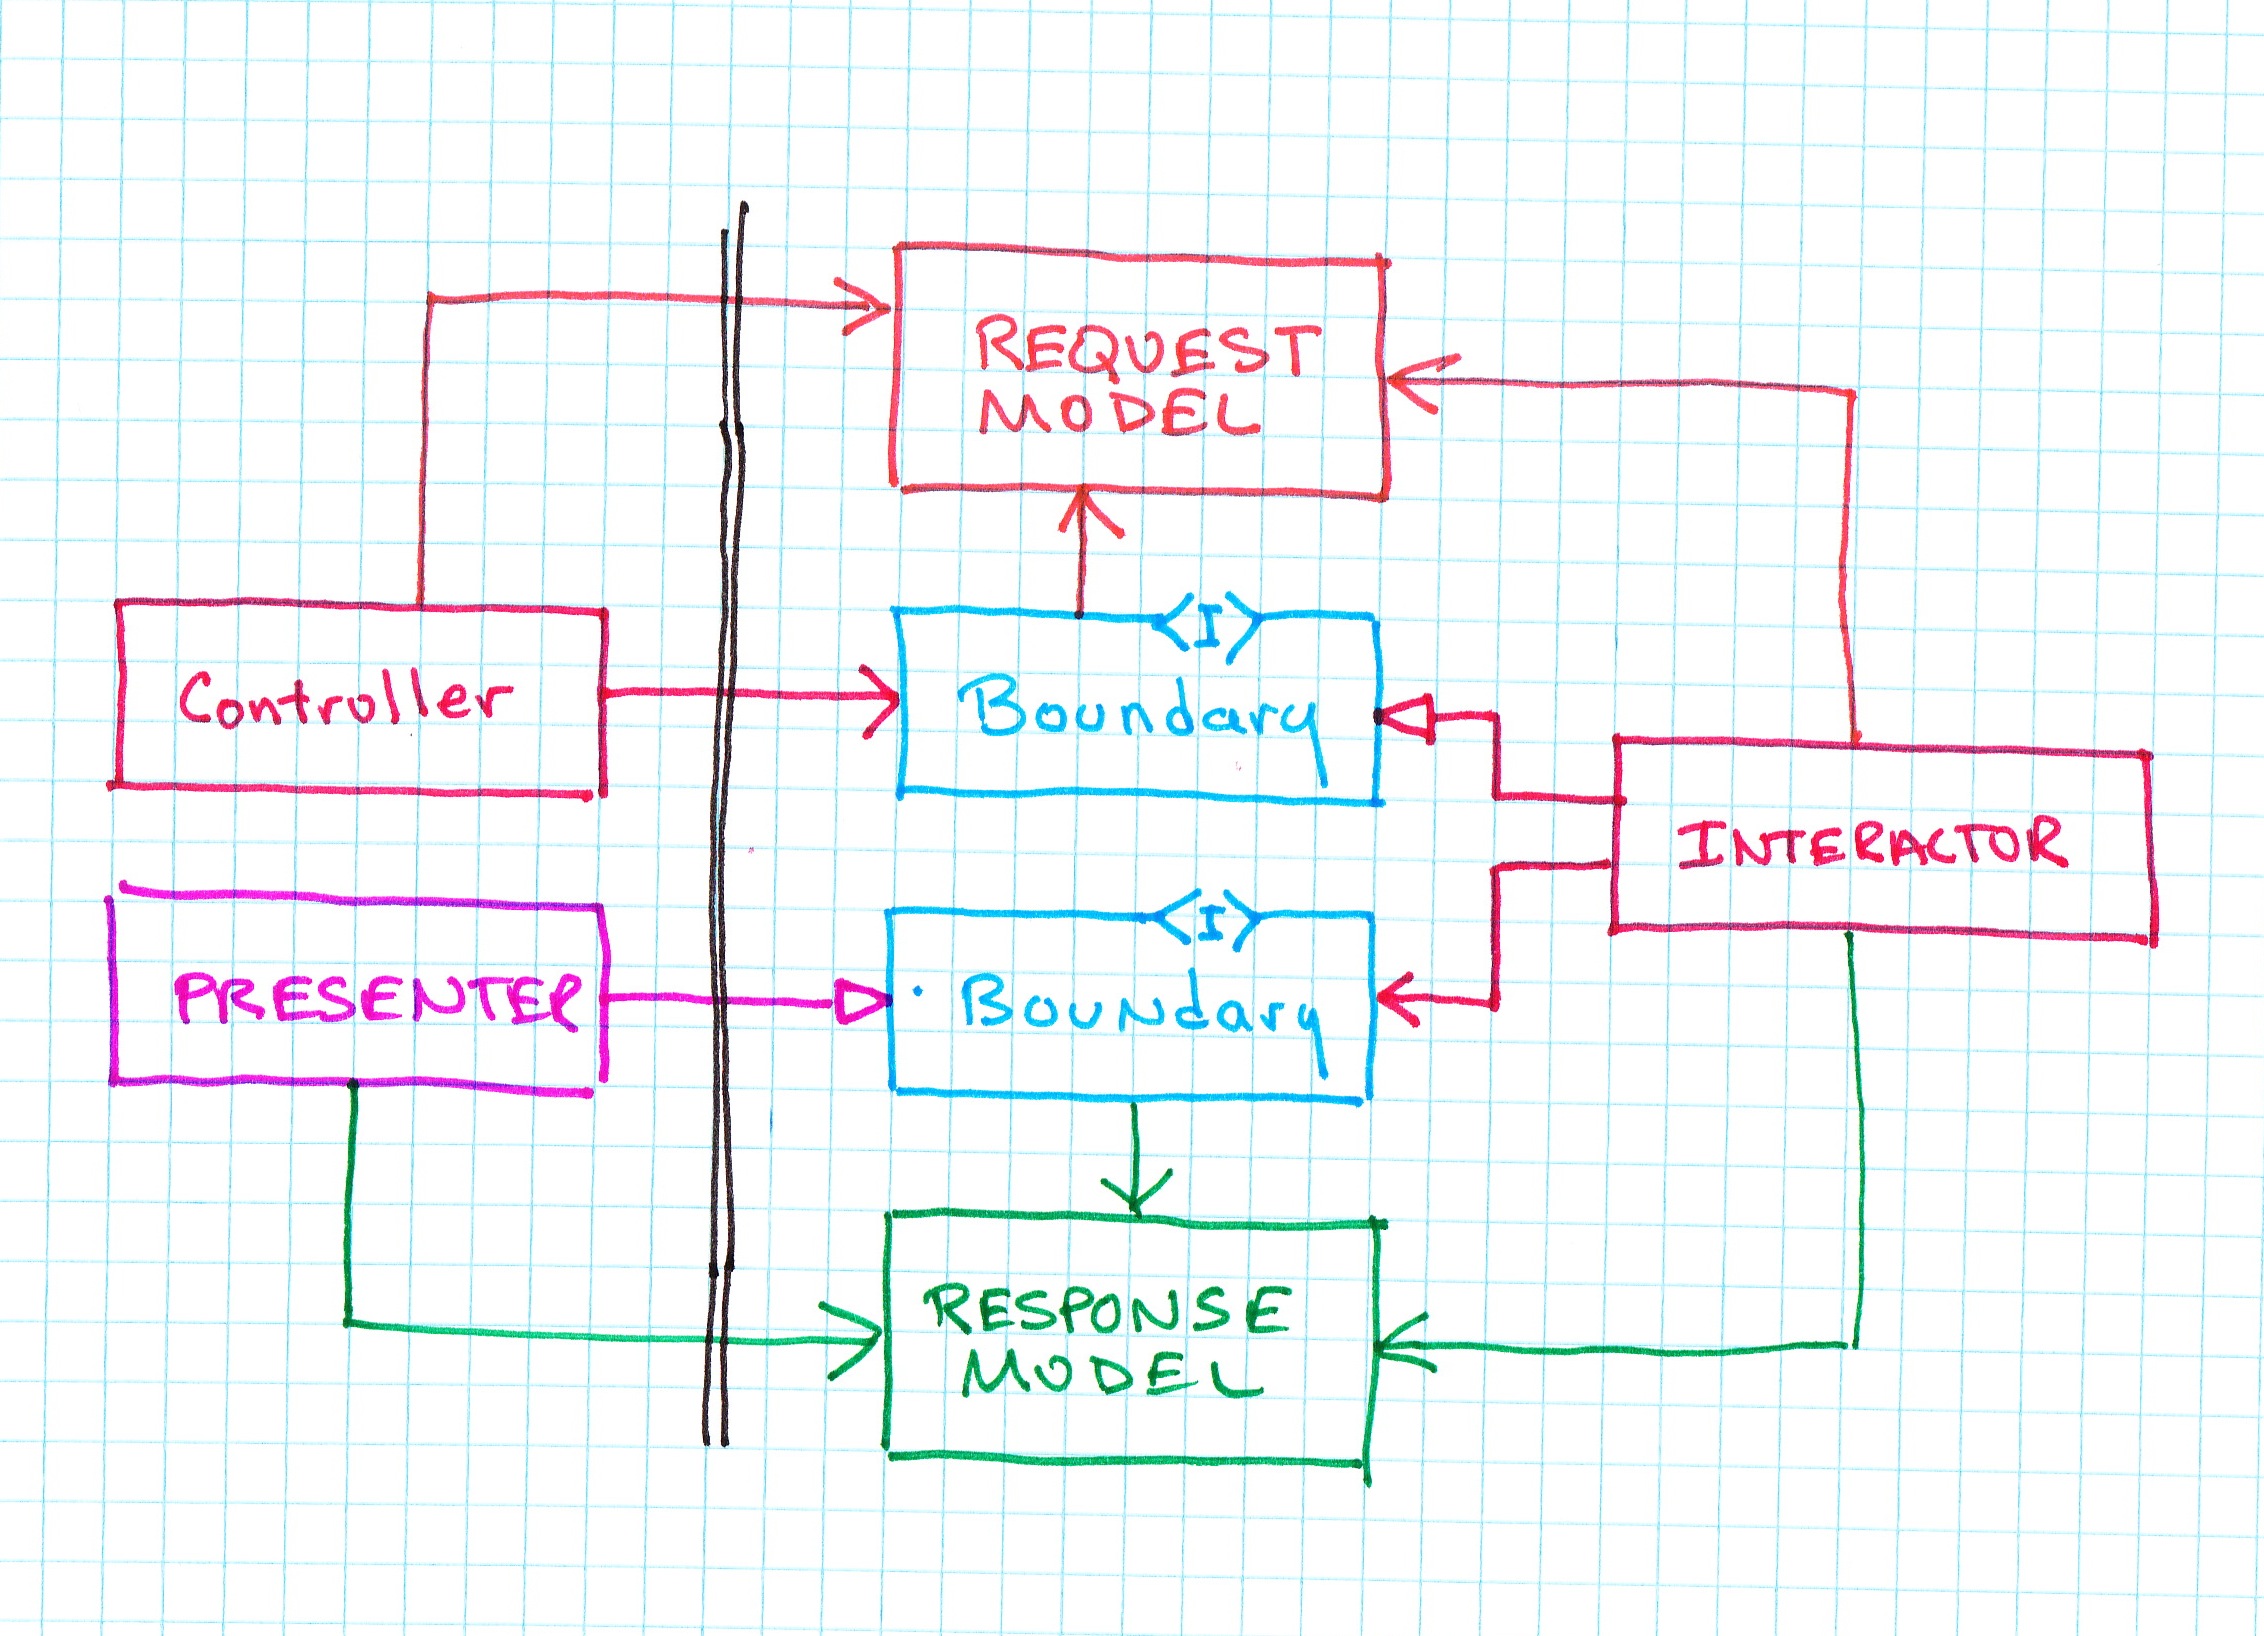 REQUEST
MODEL
<I>
Controller
Boundary
INTERACTOR
<I>
PRESENTER
BoUNdary
RESPONSE
MODEL